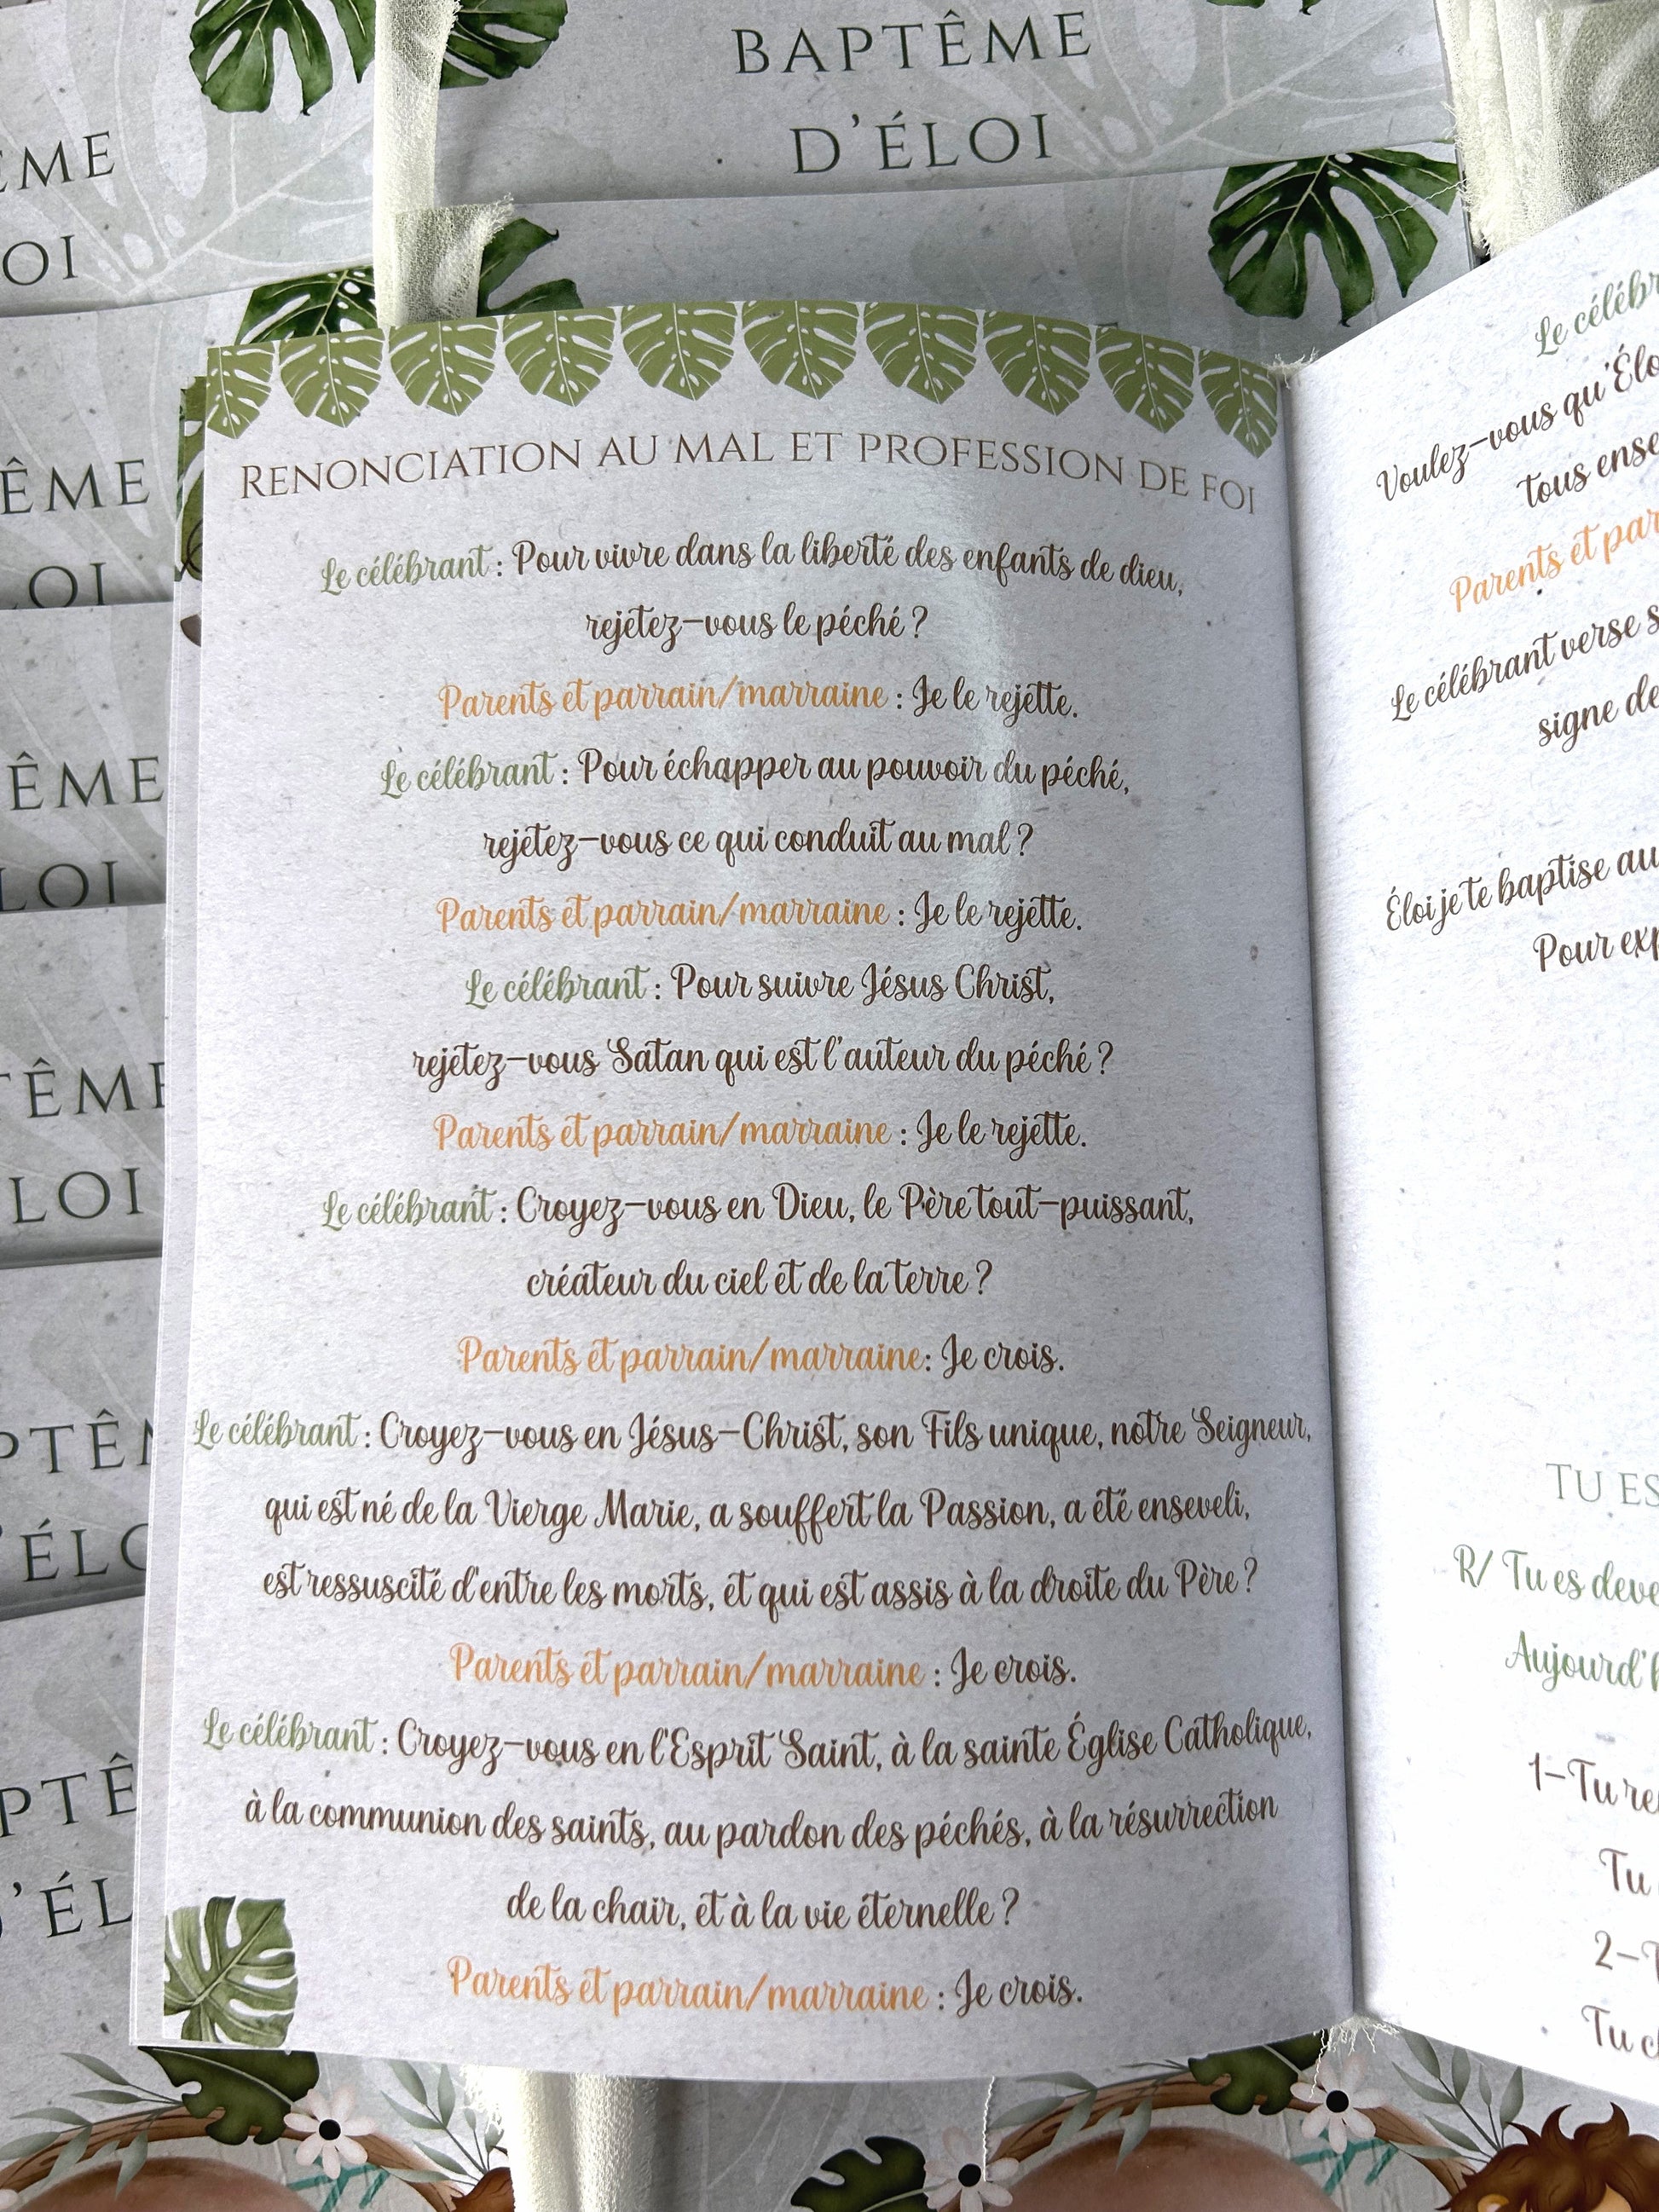 BAPTÊME
D'ÉLOI
RENONCIATION AU MAL ET PROFESSION DE FOI
Le célébrant : Pour vivre dans la liberté des enfants de dieu,
rejetez-vous le péché ?
Parents et parrain/marraine : Je le rejette.
Le célébrant : Pour échapper au pouvoir du péché,
rejetez-vous ce qui conduit au mal ?
Parents et parrain/marraine : Je le rejette.
Le célébrant : Pour suivre Jésus Christ,
rejetez-vous Satan qui est l'auteur du péché ?
Parents et parrain/marraine : Je le rejette.
Le célébrant : Croyez-vous en Dieu, le Père tout-puissant,
créateur du ciel et de la terre ?
Parents et parrain/marraine: Je crois.
Le célébrant : Croyez-vous en Jésus-Christ, son Fils unique, notre Seigneur,
qui est né de la Vierge Marie, a souffert la Passion, a été enseveli,
est ressuscité d'entre les morts, et qui est assis à la droite du Père ?
Parents et parrain/marraine : Je crois.
Le célébrant : Croyez-vous en l'Esprit Saint, à la sainte Église Catholique,
à la communion des saints, au pardon des péchés, à la résurrection
de la chair, et à la vie éternelle ?
Parents et parrain/marraine : Je crois.
Le célébr
Voulez-vous qu'Élo
tous ense
Parents et par
Le célébrant verse s
signe de
Éloi je te baptise au
Pour exp
TU ES
R/ Tu es deve
Aujourd'h
1-Tu re
Tu
2-T
Tu c
ÊME
OI
ÊME
LOI
ÊME
LOI
TÊME
LOI
PTÊM
'ÉLO
PTÊ
'ÉL